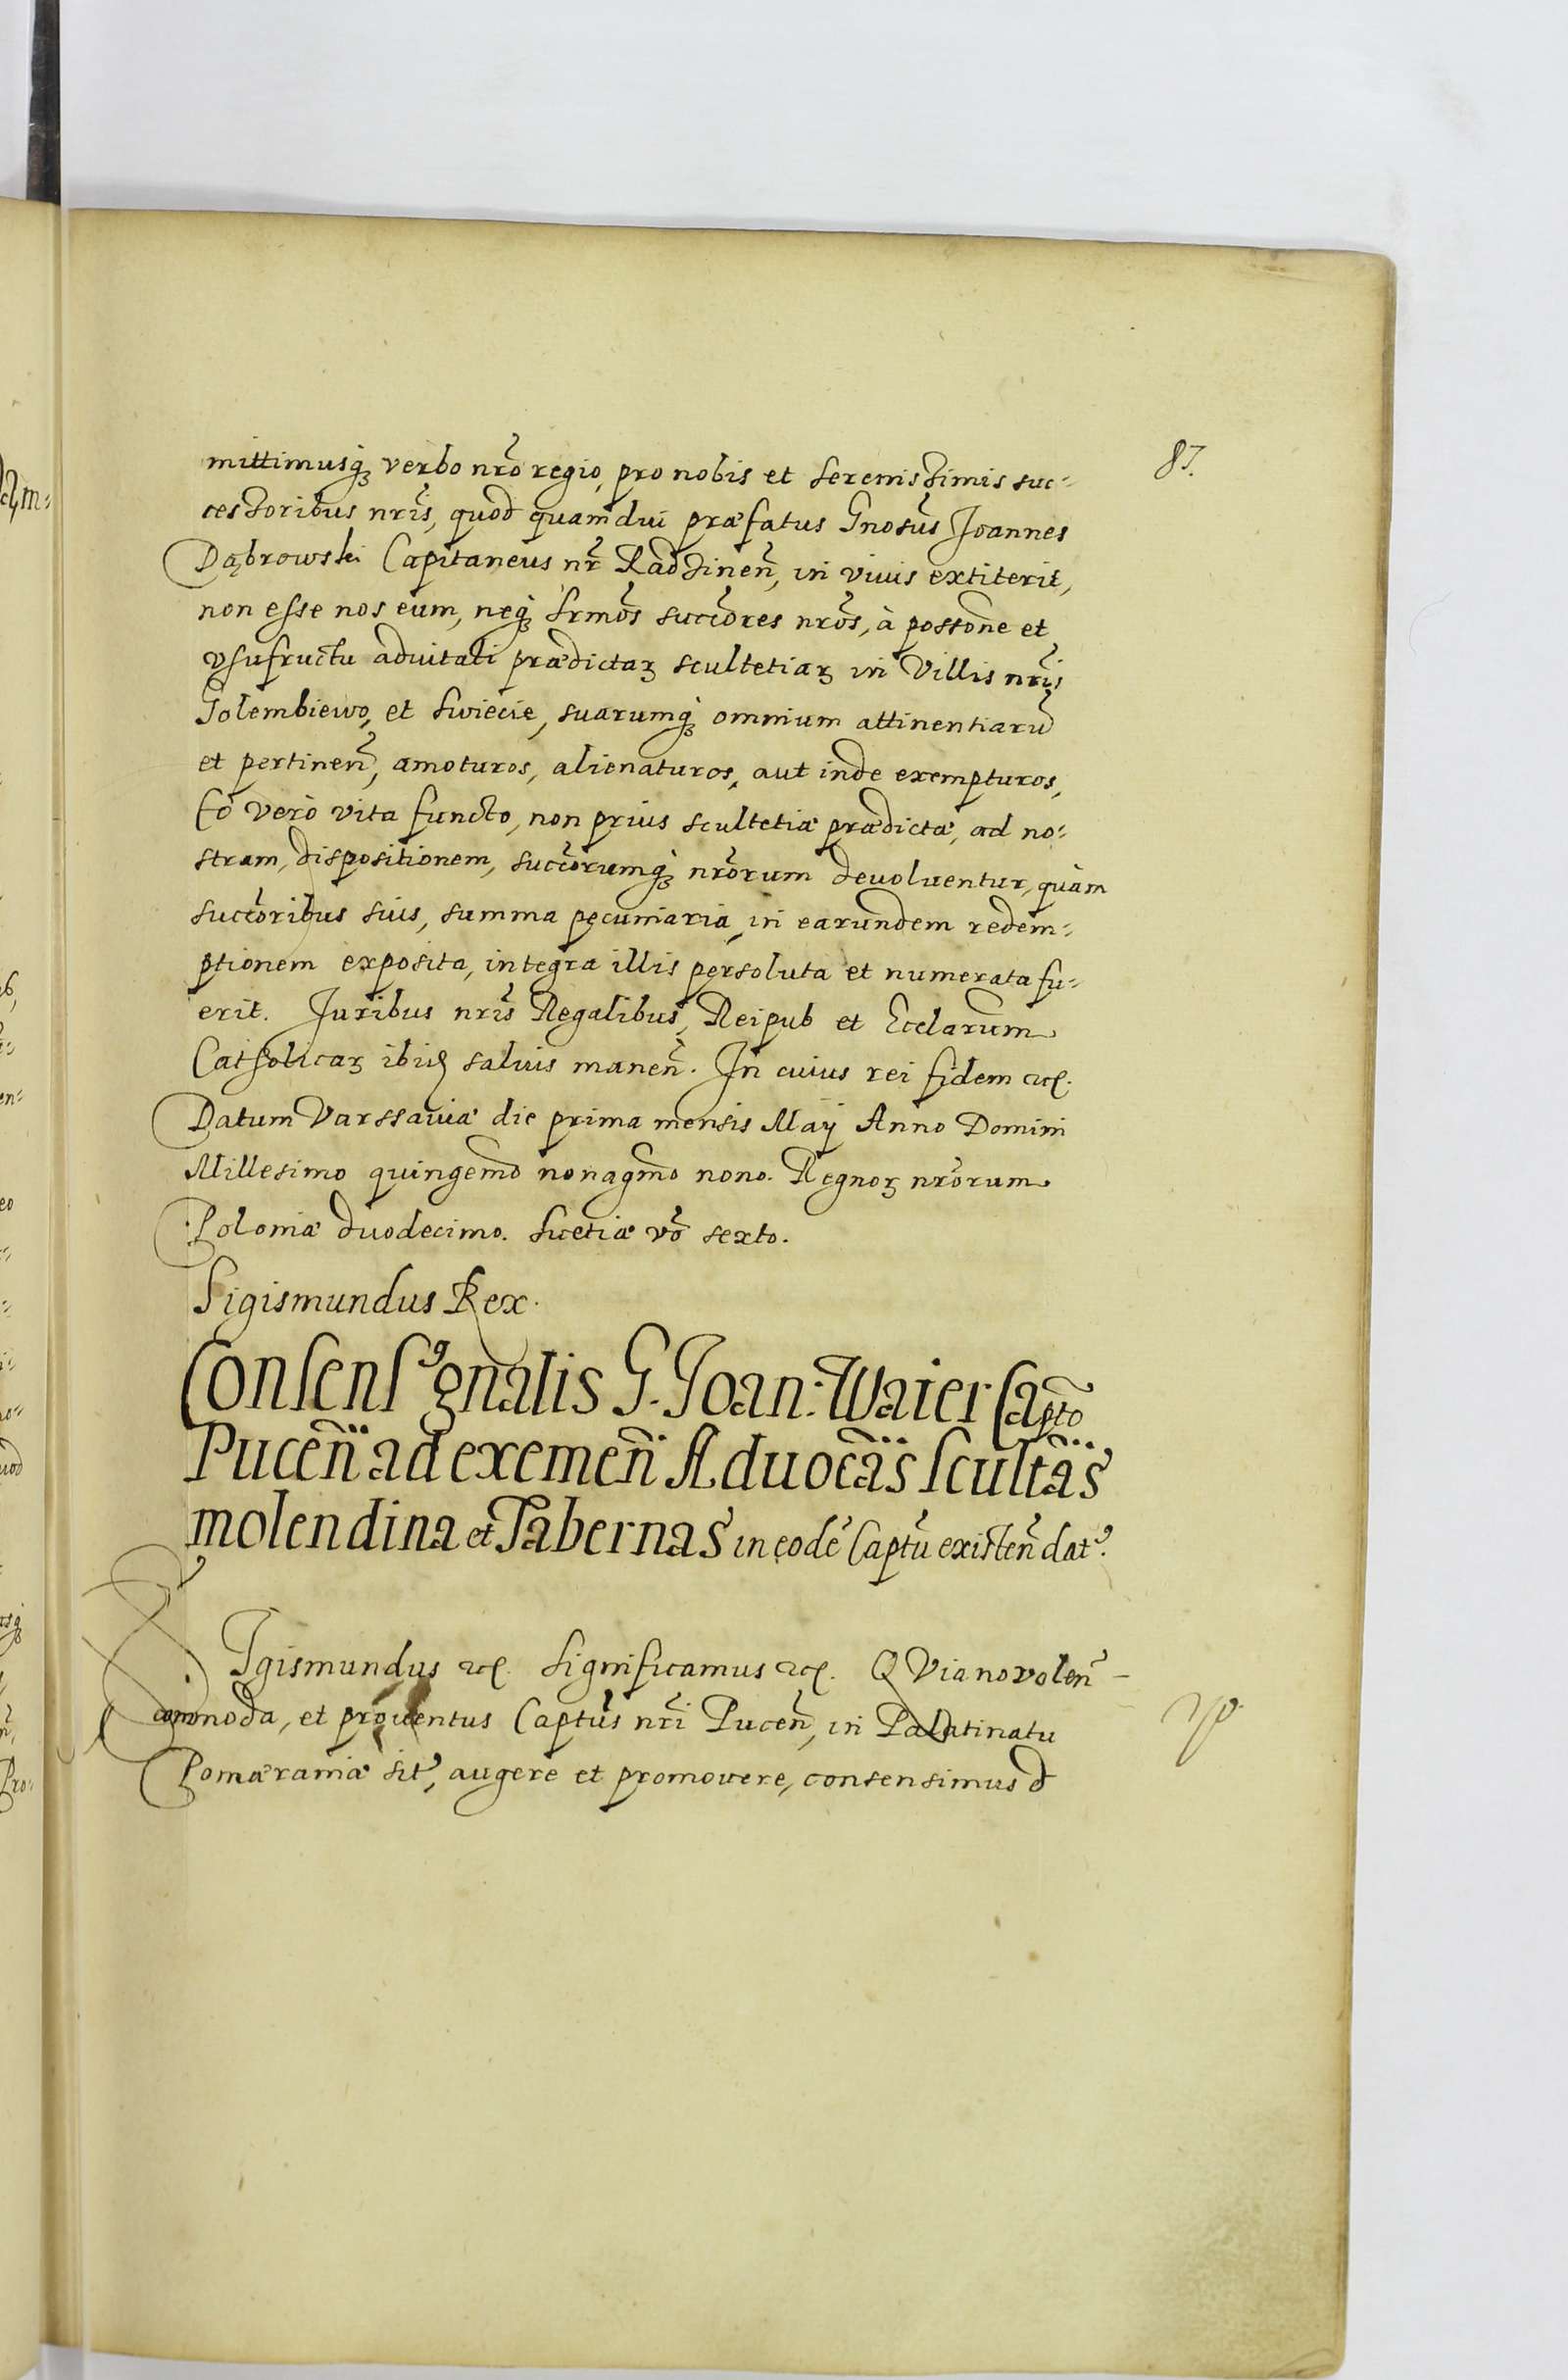 87.
mittimusq₃ verbo nr̃o regio, pro nobis et serenissimis suc-
cessoribus nr̃is, quod quamdiu præfatus Gnosus Joannes
Dąbrowski Capitaneus nr̃ Radzinen̄, in viuis extiterit,
non esse nos eum, neq₃ Srmos succores nr̃os, à possone et
vsufructu aduitali prædictaꝝ scultetiaꝝ in Villis nr̃is
Golembiewo, et Swiecie, suarumq₃ omnium attinentiarū
et pertinen̄, amoturos, alienaturos, aut inde exempturos,
Eo verò vita functo, non prius scultetiæ prædictæ, ad no-
stram, dispositionem, succorumq₃ nr̃orum deuoluentur, quàm
succoribus suis, summa pecuniaria, in earundem redem-
ptionem exposita, integra illis persoluta et numerata fu-
erit. Juribus nr̃is Regalibus, Reipub et Ecclarum
Catholicaꝝ ibid salvis manen̄. In cuius rei fidem etc.
Datum Varssauiæ die prima mensis Maÿ Anno Domini
Millesimo quingemo nonagmo nono. Regnoꝝ nr̃orum
Poloniæ duodecimo. Suetiæ vo sexto.
Sigismundus Rex.
Consensꝰ gnalis G. Joan: Waier Capto
Pucen̄ ad exemen̄ Aduocãs Scultãs
molendina et Tabernas in eodē Captu existen̄ datꝰ.
Sigismundus etc. Significamus etc. QVia nos volen̄
commoda, et prouentus Captus nr̃i Pucen̄, in Palatinatu
Pomæraniæ sitꝰ, augere et promouere, consensimus d